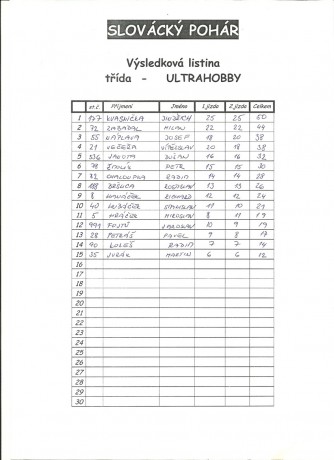 SLOVÁCKÝ POHÁR
Výsledková listina
třída - ULTRAHOBBY
st.č. Příjmení Jméno 1.jízda 2.jízda Celkem
1 177 KVASNIČKA JINDŘICH 25 25 50
2 72 ZABADAL MILAN 22 22 44
3 55 JOSEF 18 20 38
4 21 VÍTĚSLAV 20 18 38
5 JAGOŠ DUŠAN 16 16 32
6 79 PETR 15 15 30
7 82 CHALOUPKA RADIM 14 14 28
8 188 ROSTISLAV 13 13 26
9 8 12 12 24
10 40 STANISLAV 11 10 21
11 5 MIROSLAV 8 11 19
12 991 FOJTŮ JAROSLAV 10 9 19
13 28 PETRÁŠ PAVEL 9 8 17
14 90 BOLEŠ RADIM 7 7 14
15 35 JURÁK MARTIN 6 6 12
16
17
18
19
20
21
22
23
24
25
26
27
28
29
30